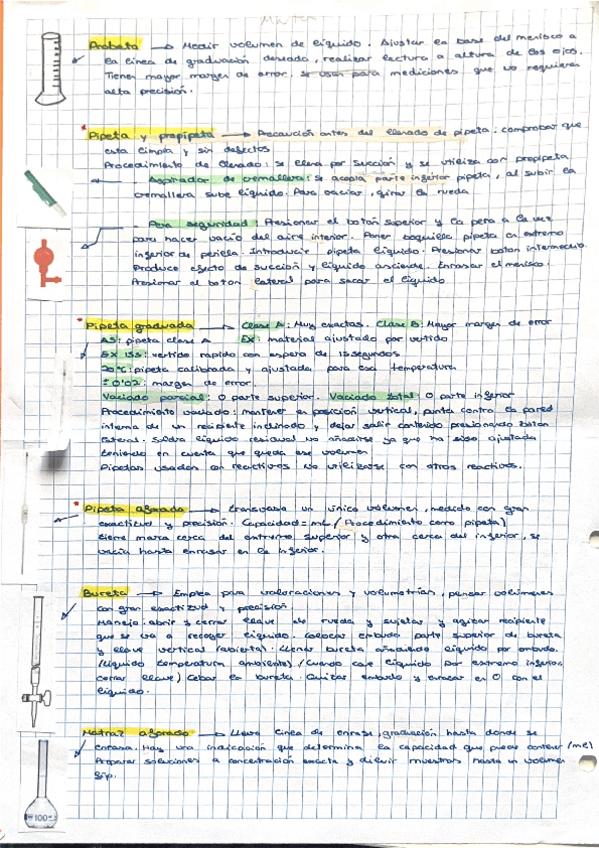 Probeta → Medir volumen de líquido. Ajustar en base del menisco a
la línea de graduación deseada, realizar lectura a altura de los ojos.
Tienen mayor margen de error. Se usan para mediciones que no requieren
alta precisión.
* Pipeta y propipeta → Precaución antes del llenado de pipeta: comprobar que
esta limpia y sin defectos
Procedimiento de llenado: se llena por succión y se utiliza con propipeta
- Aspirador de cremallera: se acopla parte inferior pipeta, al subir la
cremallera sube líquido. Para vaciar, girar la rueda
- Pera seguridad: Presionar el botón superior y la pera a la vez
para hacer vacío del aire interior. Poner boquilla pipeta en extremo
inferior de perilla. Introducir pipeta líquido. Presionar botón intermedio.
Produce efecto de succión y líquido asciende. Enrasar el menisco.
Presionar el botón lateral para sacar el líquido
* Pipeta graduada → Clase A: Muy exactas. Clase B: Mayor margen de error
AS: pipeta clase A EX: material ajustado por vertido
EX 15s: vertido rápido con espera de 15 segundos
20°C: pipeta calibrada y ajustada para esa temperatura
±0'02: margen de error.
Vaciado parcial: 0 parte superior. Vaciado total: 0 parte inferior
Procedimiento vaciado: mantener en posición vertical, punta contra la pared
interna de un recipiente inclinado y dejar salir contenido presionando botón
lateral. Saldrá líquido residual no añadirse ya que ha sido ajustada
teniendo en cuenta que queda ese volumen
Pipetas usadas con reactivos no utilizarse con otros reactivos.
* Pipeta aforada → transvasa un único volumen, medido con gran
exactitud y precisión. Capacidad = mL (Procedimiento como pipeta)
tiene marca cerca del extremo superior y otra cerca del inferior, se
vacía hasta enrasar en la inferior.
Bureta → Emplea para valoraciones y volumetrías, pensar volúmenes
con gran exactitud y precisión.
Manejo: abrir y cerrar llave de rueda y sujetar y agitar recipiente
que se va a recoger líquido. Colocar embudo parte superior de bureta
y llave vertical (abierta). Llenar bureta añadiendo líquido por embudo.
(líquido temperatura ambiente) (cuando cae líquido por extremo inferior,
cerrar llave) Cebar la bureta. Quitar embudo y enrasar en 0 con el
líquido.
Matraz aforado → Lleva línea de enrase, graduación hasta donde se
enrasa. Hay una indicación que determina la capacidad que puede contener (mL)
Preparar soluciones a concentración exacta y diluir muestras hasta un volumen
fijo.
100